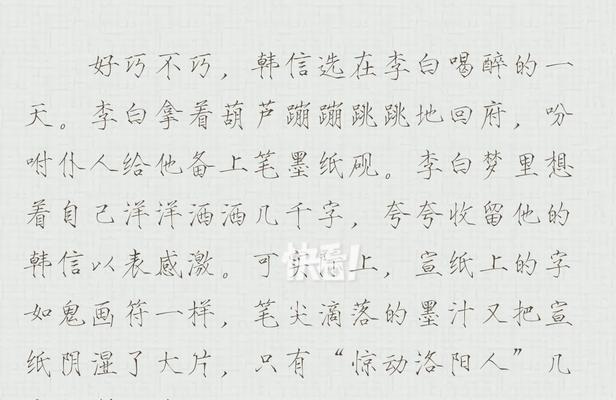 好巧不巧，韩信选在李白喝醉的一
天。李白拿着葫芦蹦蹦跳跳地回府，吩
咐仆人给他备上笔墨纸砚。李白梦里想
着自己洋洋洒洒几千字，夸夸收留他的
韩信以表感激。可实际上，宣纸上的字
如鬼画符一样，笔尖滴落的墨汁又把宣
纸阴湿了大片，只有“惊动洛阳人”几
快看!